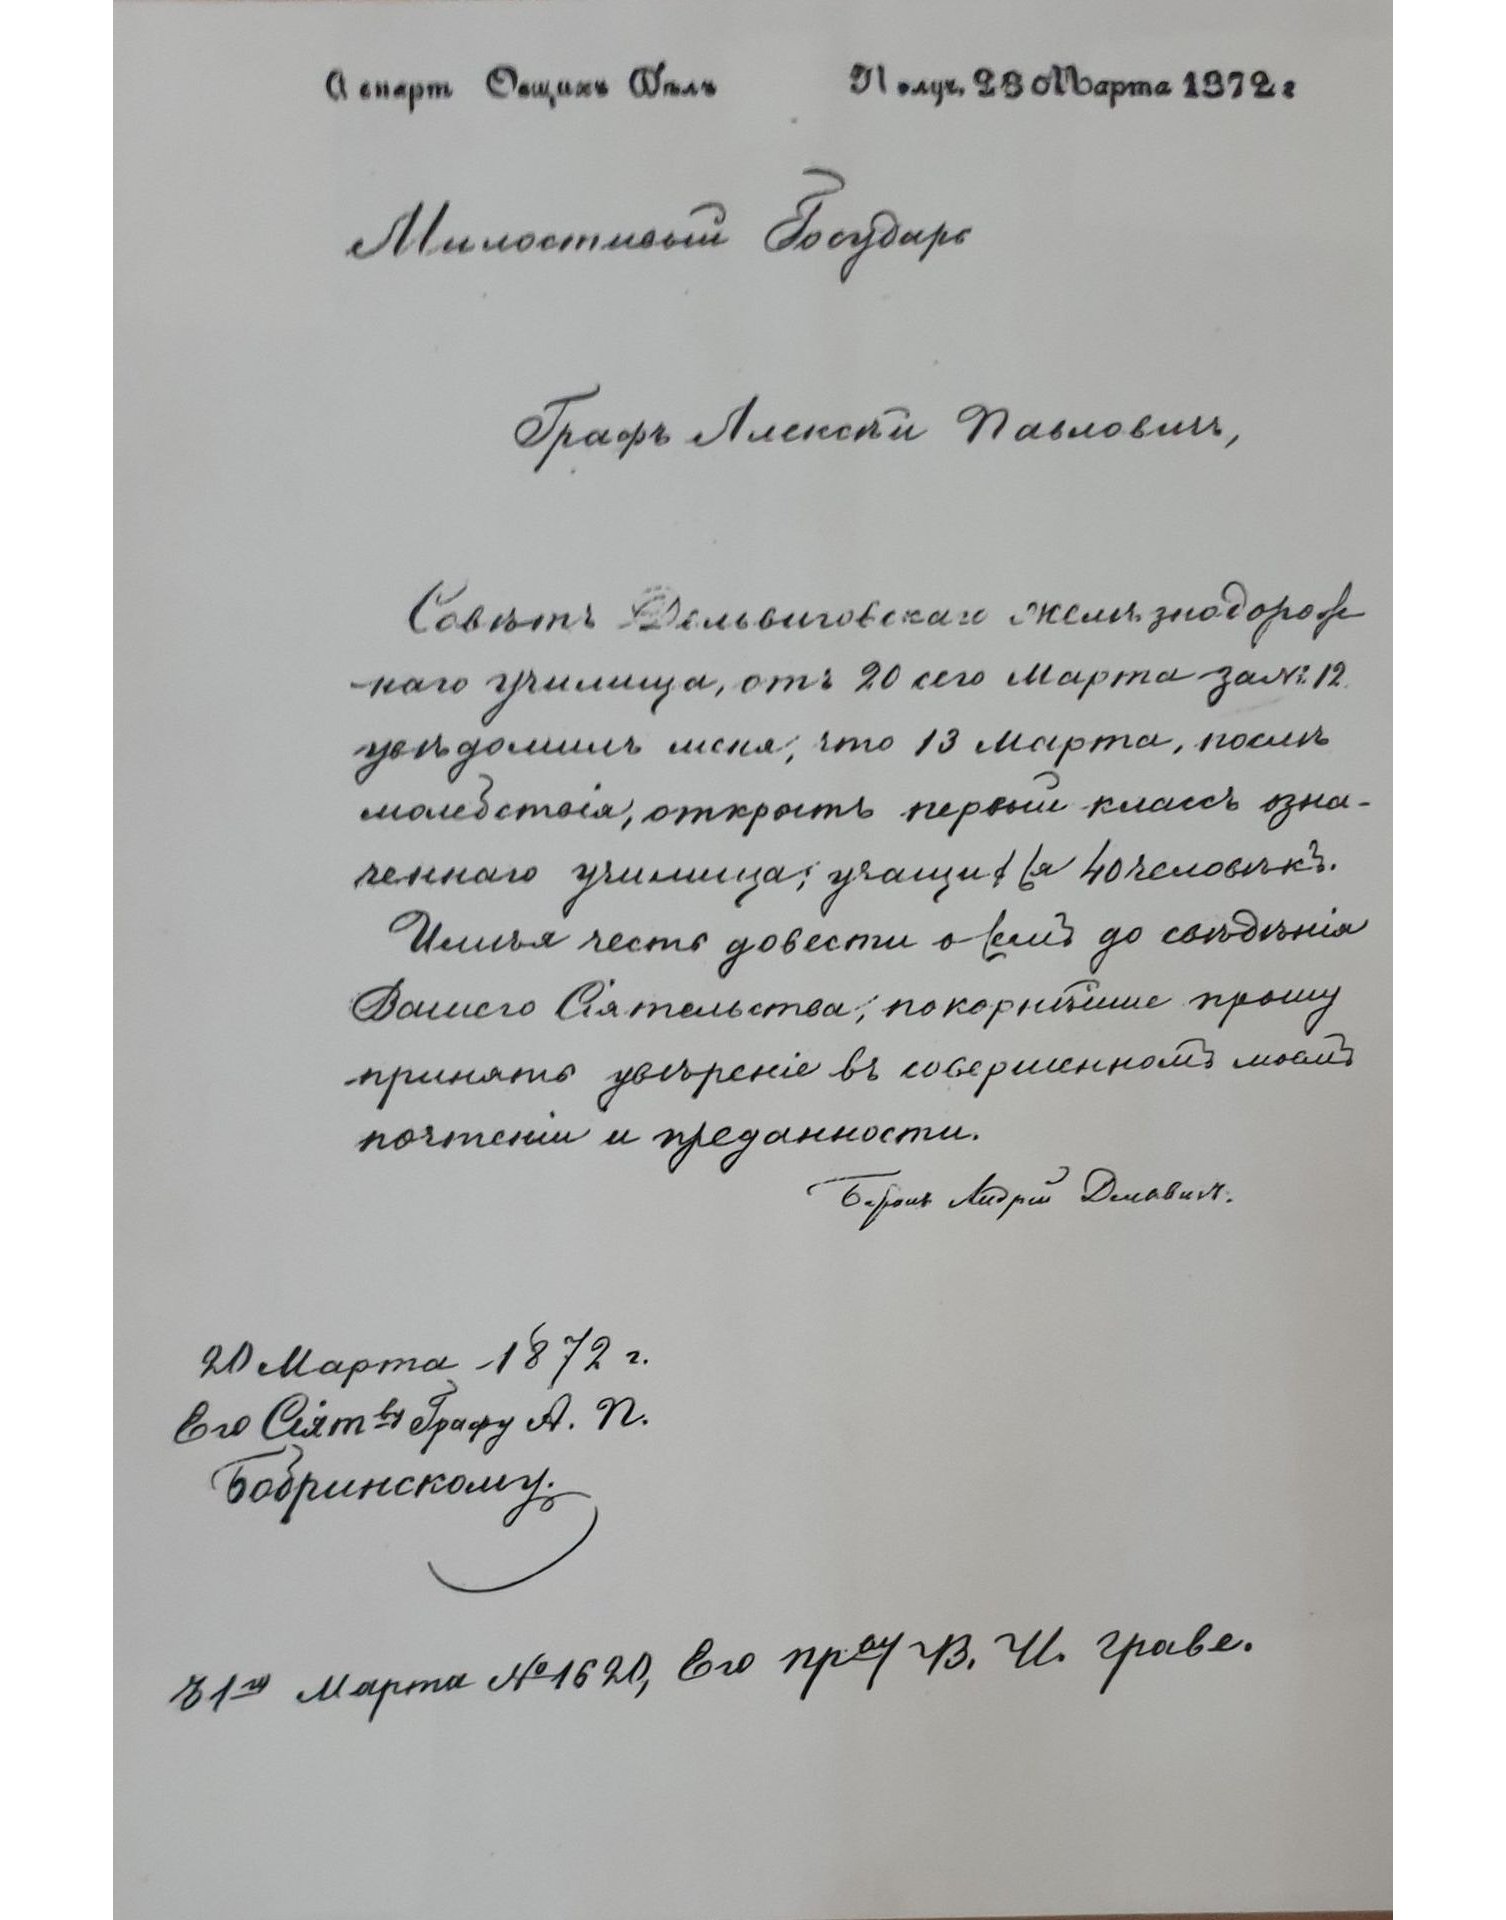 Департ Общихъ Дѣлъ Получ. 23 Марта 1872 г
Милостивый Государь
Графъ Алексѣй Павловичъ,
Совѣтъ Дельвиговскаго желѣзнодорож
-наго училища, отъ 20 сего Марта за № 12
увѣдомилъ меня, что 13 Марта, послѣ
молебствія, открытъ первый классъ озна-
ченнаго училища; учащихся 40 человѣкъ.
Имѣя честь довести о семъ до свѣдѣнія
Вашего Сіятельства, покорнѣйше прошу
принять увѣреніе въ совершенномъ моемъ
почтеніи и преданности.
Баронъ Андрей Дельвигъ.
20 Марта 1872 г.
Его Сіятву Графу А. П.
Бобринскому.
21го Марта № 1620, Его прву В. И. Граве.